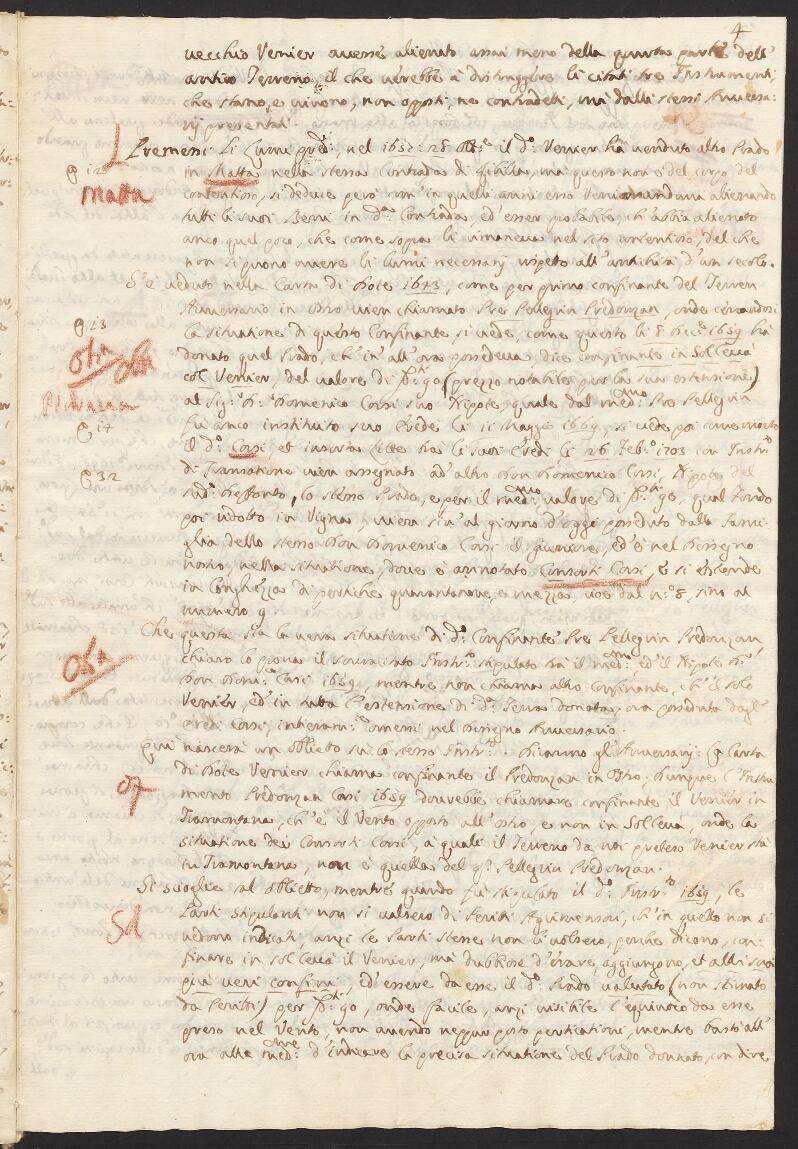 4
vecchio Venier avesse alienato assai meno della quarta parte dell'
antico Terreno, il che verebbe à distruggere li citati tre Instrumenti,
che stano, e vivono, non opposti, ne contradetti, mà dalli stessi Aversa-
rij presentati.
Premessi li Lumi pred:ⁱ, nel 1651: 28 il d:º Venier hà venduto altro Prado
C 12
in Matta nella stessa Contrada di Sibilla, mà questo non è del corpo del
Matta
contentioso, si deduce però com'in quelli anni esso Venier andava alienando
tutti li suoi Beni in d:ª Contrada, ed'esser probabile, ch'abbia alienato
anco quel poco, che come sopra li rimaneva nel sito contentioso, del che
non si puono avere li lumi necessarij rispeto all'antichità d'un secolo.
S'è veduto nella Carta di Dote 1643, come per primo confinante del Terren
Aversario in Ostro vien chiamato Pre Pellegrin Predonzan, onde cercandosi
C 13
la situatione di questo Confinante, si vede, come questo li 8 1659 hà
donato quel Prado, ch'in'all'ora possedeva, dice confinante in Sol levà
col Venier, del valore di 90 (prezzo notabile per la sua estensione)
al Sig:ʳ D: Domenico Corsi suo Nipote, quale dal med:ᵐᵒ Pre Pellegrin
fù anco instituito suo Erede li 11 Maggio 1669, si vede poi come morto
C 14
il d:º Corsi, et insorta lite trà li suoi Eredi li 26 Feb:º 1703 con Instr:º
C 32
di Transatione vien assegnato ad'altro Don Domenico Corsi, Nipote del
sud:º Deffonto, lo stesso Prado, e per il med:ᵐᵒ valore di 90, qual fondo
poi ridotto in Vigna, viene sin'al giorno d'oggi posseduto dalla Fami-
glia dello stesso Don Domenico Corsi il giuniore, ed'è nel Dissegno
nostro, nella situatione, dove è annotato Consorti Corsi, e si estende
in longhezza di pertiche quarantanove, e mezza, cioè dal n:º 8, sino al
numero 9.
Che questa sia la vera situatione di d:º Confinante Pre Pellegrin Predonzan,
chiaro lo prova il sopracitato Instr:º stipulato trà il med:ᵐᵒ ed'il Nipote
Don Dom:ᶜᵒ Corsi 1659, mentre non chiama altro Confinante, ch'il solo
Venier, ed'in tutta l'estensione di d:ª Terra donata, ora posseduta dagl'
Eredi Corsi, intieram:ᵗᵉ omessi nel Dissegno Aversario.
Quì nascerà un obietto sù lo stesso Instr:º. Diranno gl'Aversarij: La Carta
di Dote Venier chiama confinante il Predonzan in Ostro, dunque l'Instru-
mento Predonzan Corsi 1659 dovrebbe chiamare confinante il Venier in
Tramontana, ch'è il Vento opposto all'Ostro, e non in Sol levà, onde la
situatione dei Consorti Corsi, a quali il Terreno da noi preteso Venier stà
in Tramontana, non è quella del q:ᵐ Pellegrin Predonzan.
Si scioglie tal obietto, mentre quando fù stipulato il d:º Instr:º 1659, le
Sd
Parti stipulanti non si valsero di Periti Agrimensori, ch'in quello non si
vedono indicati, anzi le Parti stesse non li volsero, perche dicono, con-
finare in sol levà il Venier, mà dubbiose d'errare, aggiungono, et altri suoi
più veri confini, ed'essere da esse il d:º Prado valutato (non stimato
da Peritti) per 90, onde facile, anzi visibile l'equivoco da esse
preso nel Vento, non avendo neppur posto perticationi, mentre bastò all'
ora alle med:ᵐᵉ d'indicare la precisa situatione del Prado donnato, con dire